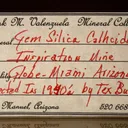 k M. Valenzuela Mineral Coll
Gem Silica Calhcido
Inspiration Mine
Globe-Miami Arizona
cted In 1940's by Tex Bu
Manuel, Arizona 520 668